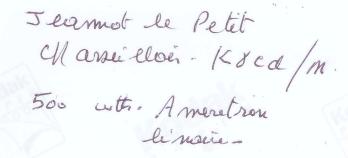 Jeannot le Petit
Marseillois. K8cd/m.
500 wtts. Ametron
linaire-